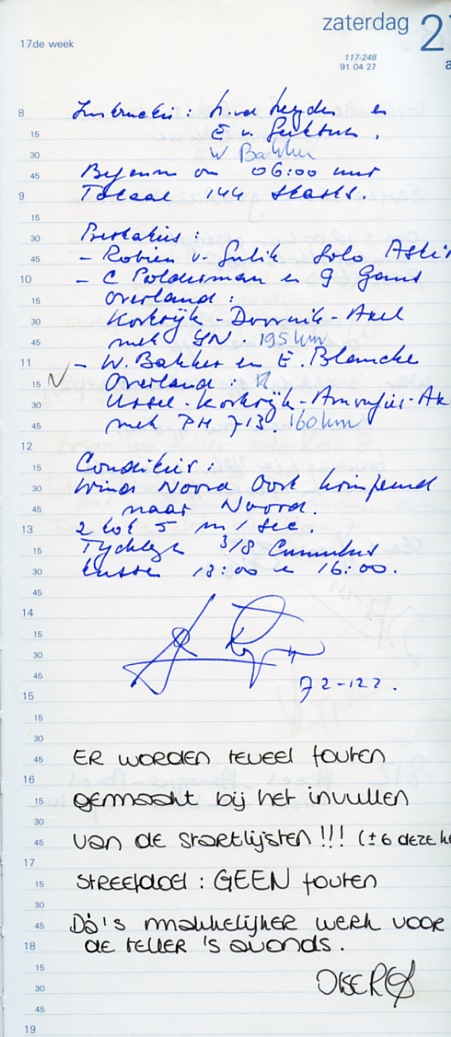 zaterdag 2
17de week
117-248
91 04 27
a
8
Instructie: h. v.d. Heyden en
15
E v.
30
W Bakker
45
Begonnen om 06:00 uur
9
Totaal 144 starts.
15
30
Prestaties:
45
- Robien v. Gulik Solo Asti
10
- C Polderman en G Gans
15
Overland:
30
Kortrijk - Doornik - Axel
45
met YN. 195 km
11
- W. Bakker en E. Blancke
15
Overland:
30
Ursel - Kortrijk - - Ax
45
met PH 713. 160 km
12
15
Condities:
30
Wind Noord Oost krimpend
45
naar Noord.
13
2 tot 5 m/sec.
15
Tydelyk 3/8 Cumulus
30
tussen 13:00 en 16:00.
45
14
15
30
45
72-122.
15
15
30
45
ER WORDEN TEVEEL FOUTEN
16
15
gemaakt bij het invullen
30
45
van de startlijsten !!! (±6 deze
17
15
streefdoel: GEEN fouten
30
45
Dà's makkelijker werk voor
18
de teller 's avonds.
15
30
45
19